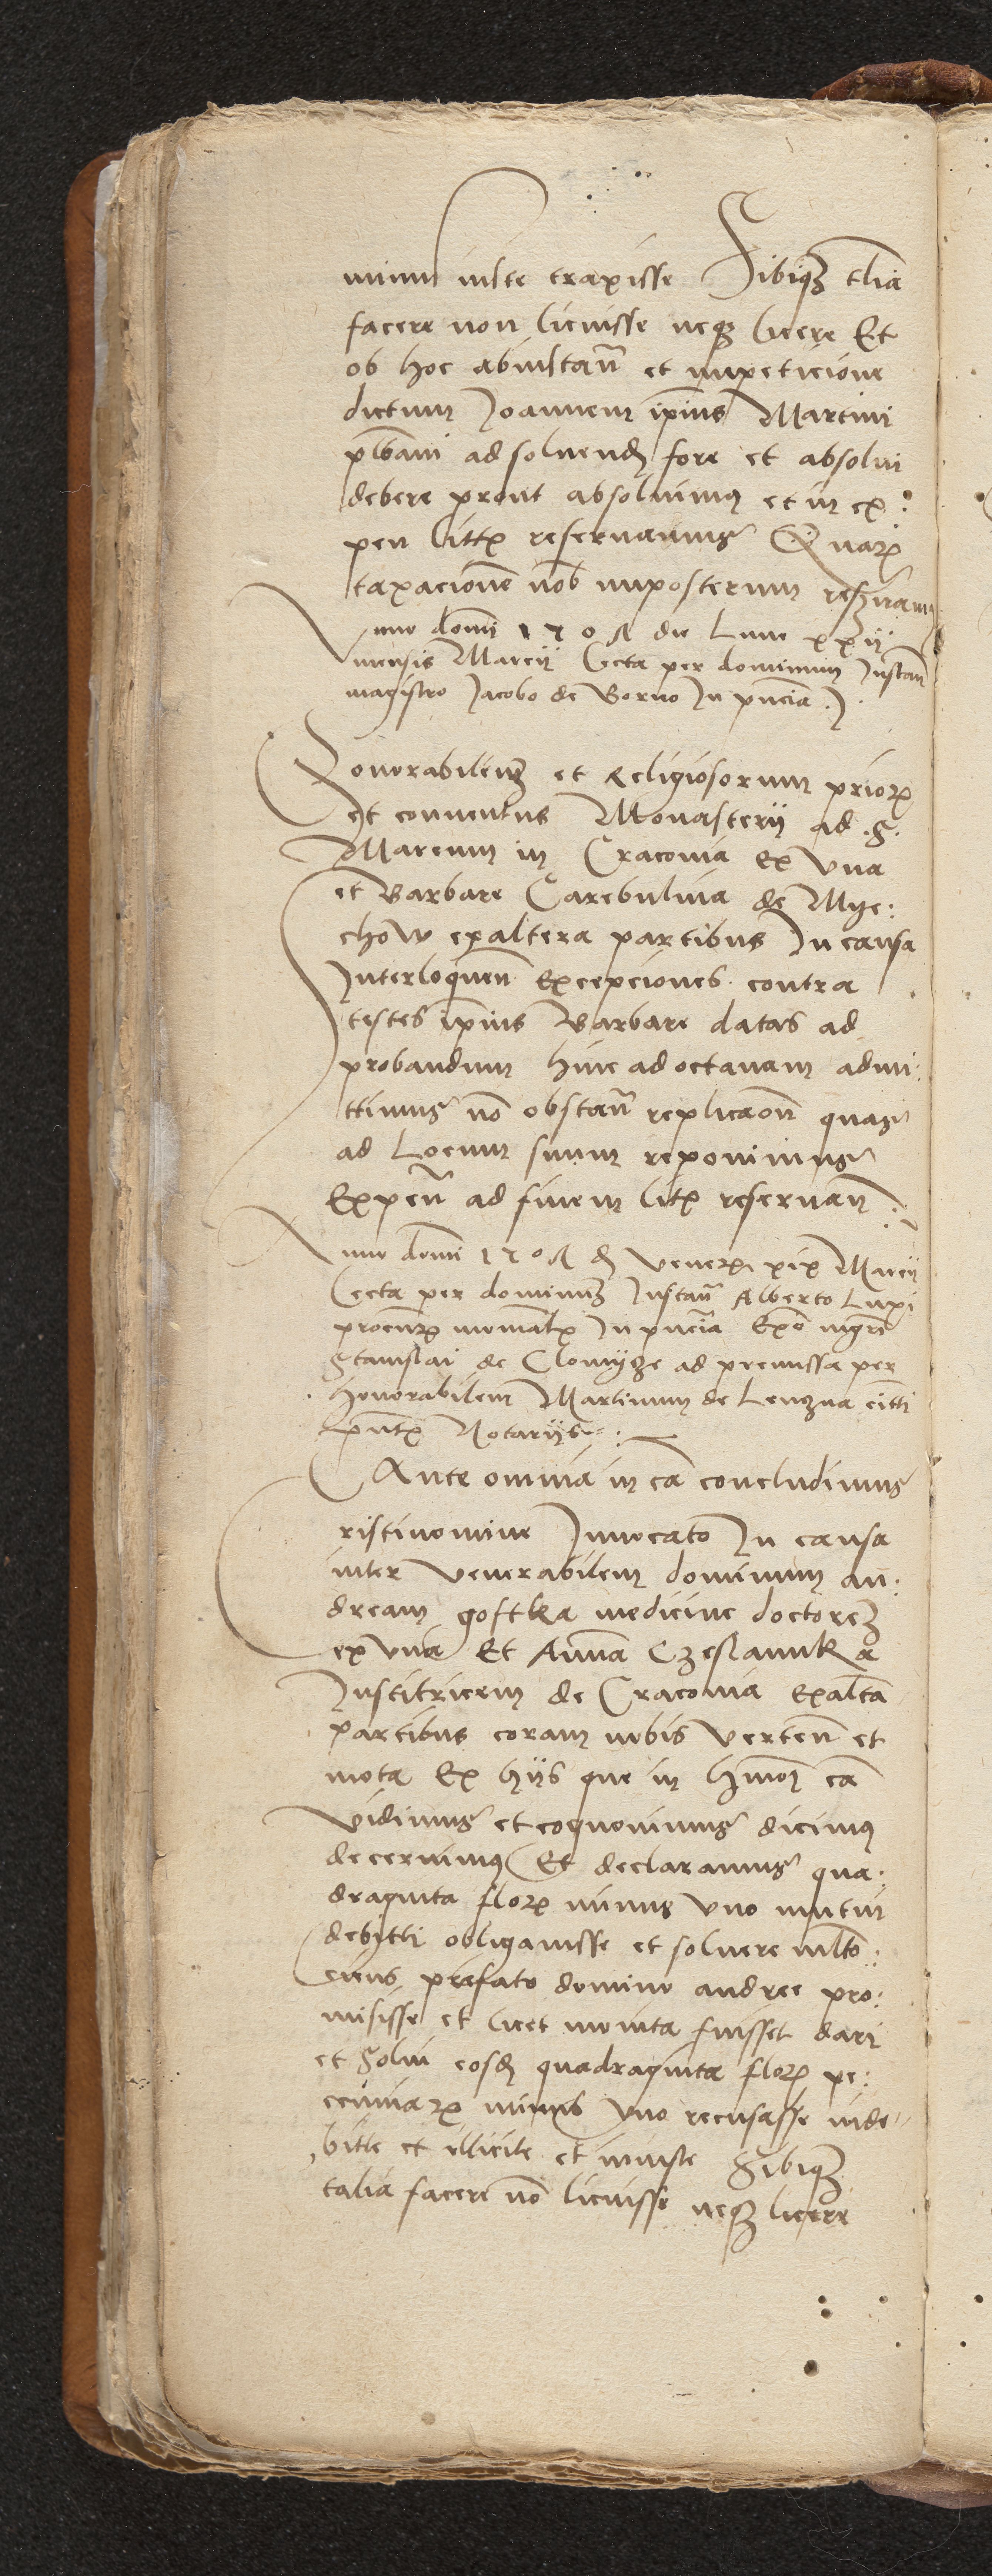 iniuste traxisse Sibiqȝ tlia
facere non licuisse neqȝ licere Et
ob hoc abinstan̄ et impeticione
dictum Joannem ip̄ius Martini
plb̄ani adsoluend fore et absolui
debere prout absoluimus et in ex:
pen litt reseruamus Quarꝫ
taxacionē nob imposterum
Anno domī 1504 die Lune xxij
mensis Marcij Lecta per dominum Instan̄
magistro Jacobo de Borno In pn̄cia.
Honorabilem et Religiosorum priorꝫ
et conuentus Monasterij ad .S.
Marcum in Cracouia ex Vna
et Barbare Carebulina de Mye:
chow exaltera partibus In causa
Interloquen̄ Excepciones contra
testes ip̄ius Barbare datas ad
probandum hinc ad octauam admi:
ttimus nō obstan̄ replicaōn quas
ad Locum suum reponimus
Expen̄ ad finem lit reseruan̄
Anno domī 1504 d Venerꝫ xix Marcij
Lecta per dominum Instan̄ Alberto Lupi
procur In pn̄cia
Stanislai de Clomyze ad premissa per
honorabilem Martinum de Lenzna
Notarijs
Ante omnia in cā concludimus
ristinomine Inuocato In causa
inter Venerabilem dominum an:
dream goftka medicine doctorem
ex Vna Et Annā Czeslaunka
Institricem de Cracouia Exaltā
partibus coram nobis Verten̄ et
mota Ex hijs que in hmōi cā
Vidimus et cognouimus dicimus
decernimus Et declaramus qua:
draginta florꝫ minus Vno mutui
debitti obligauisse et soluere
prefato domino andree pro:
misisse et licet monita fuisset dari
et Solui eosd quadraginta florꝫ pe:
cuniarꝫ minus Vno recusasse inde
bitte et illicite et iniuste Sibiqȝ
talia facere nō licuisse neqȝ licere